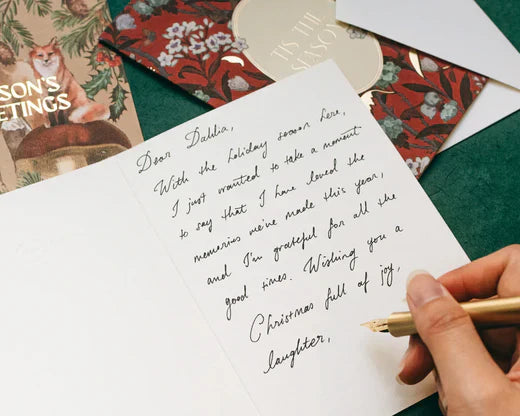 SON'S
ETINGS
'TIS THE
SEASON
Dear Dahlia,
With the holiday season here,
I just wanted to take a moment
to say that I have loved the
memories we've made this year,
and I'm grateful for all the
good times. Wishing you a
Christmas full of joy,
laughter,